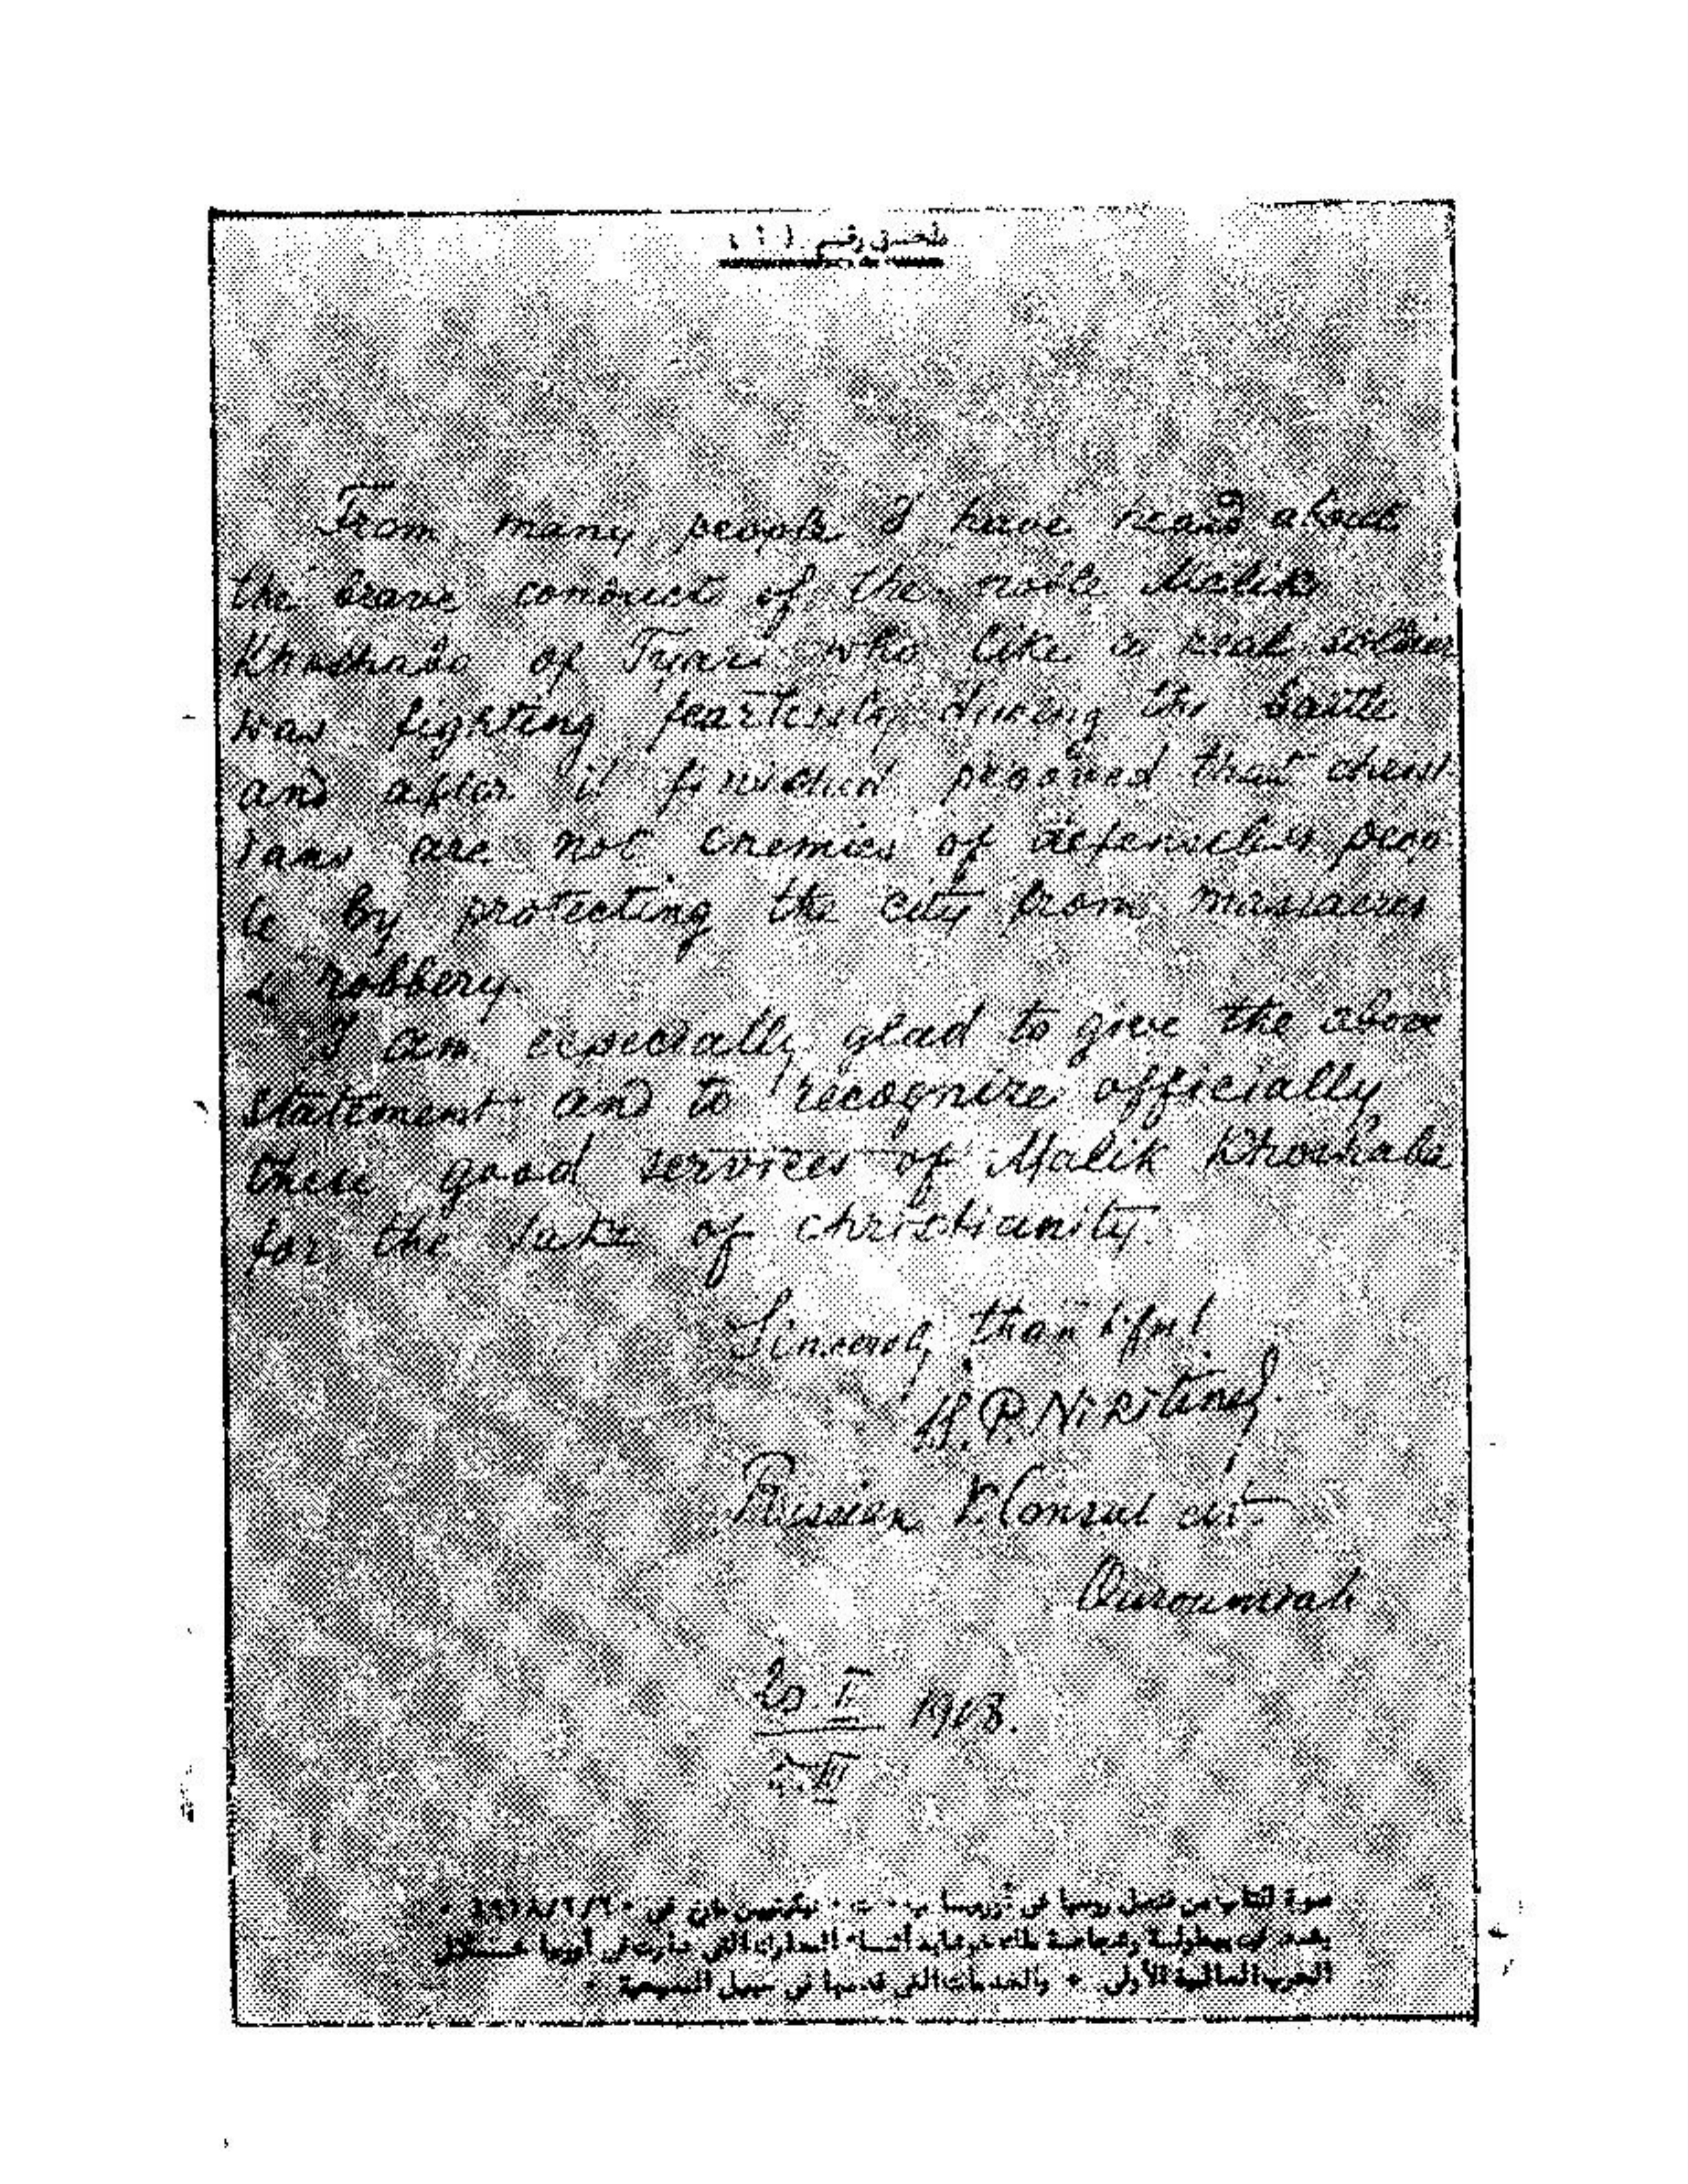 ملحق رقم (١)
From many people I have heard about
the brave conduct of the noble Malik
Khoshaba of Tyari who like a real soldier
was fighting fearlessly during the battle
and after it finished prooved that christ-
ians are not enemies of defenseless peop-
le by protecting the city from massacres
& robbery.
I am especially glad to give the above
statement and to recognize officially
these good services of Malik Khoshaba
for the sake of christianity.
Sincerely thankful
P. Nikitine
Russian V. Consul at
Ouroumiah
II 1918.
III
صورة لكتاب من قنصل روسيا في نيكوتين مؤرخ في
ببطولة وشجاعة ملك خوشابا أثناء المعارك التي دارت في خلال
الحرب العالمية الأولى والخدمات التي قدمها في سبيل المسيحية